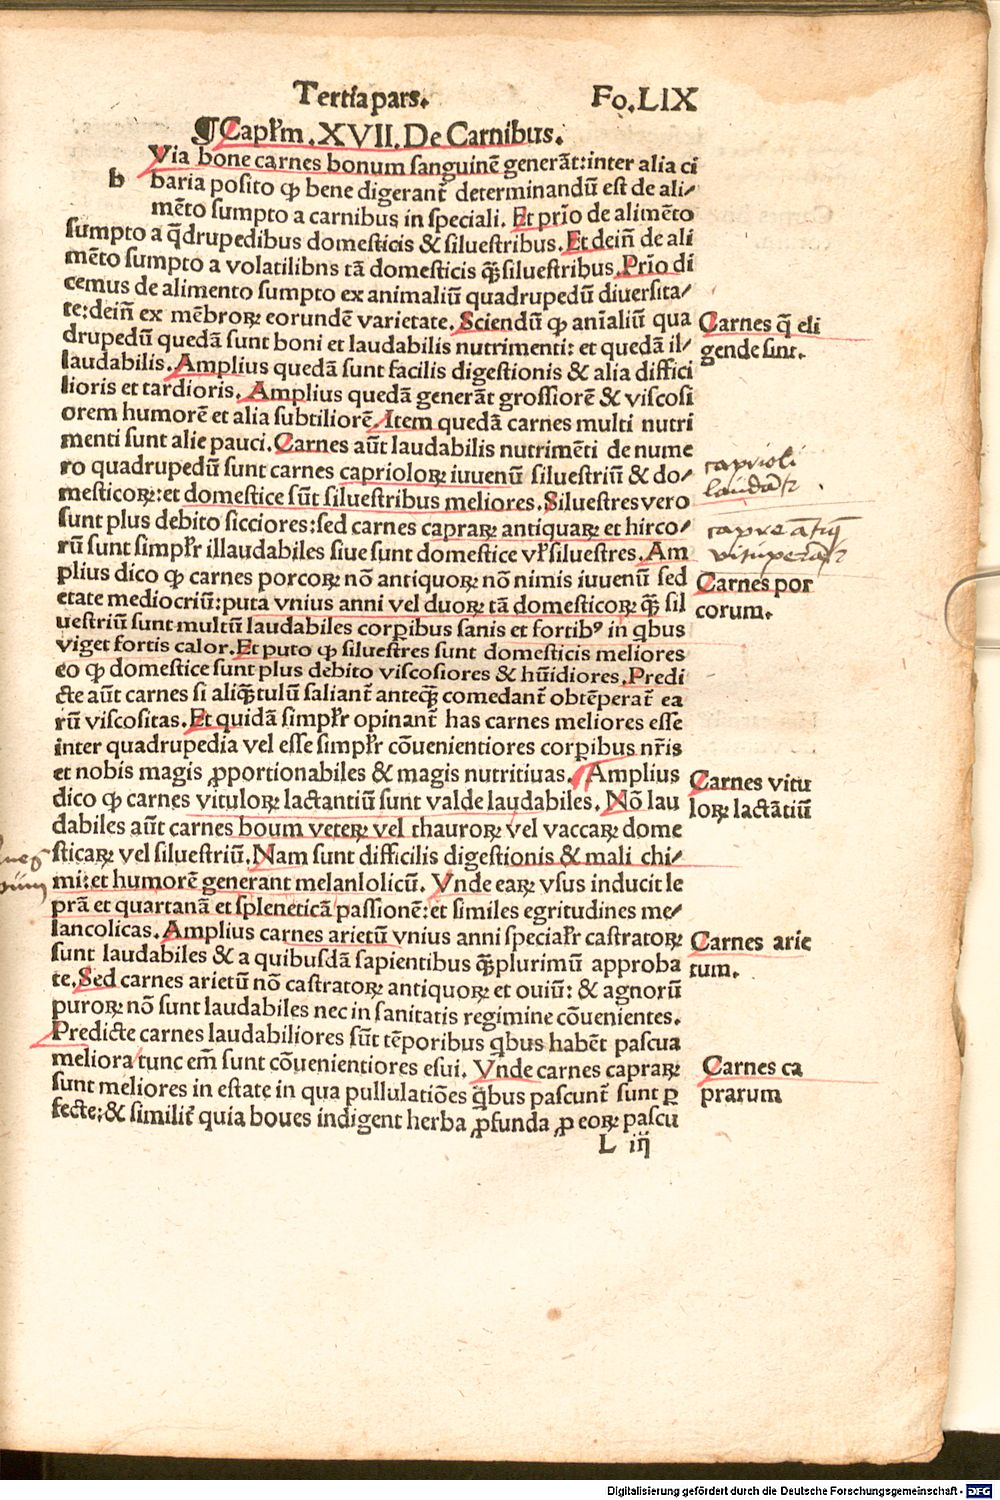 Tertia pars. Fo. LIX
¶ Capł'm .XVII. De Carnibus.
Via bone carnes bonum sanguinē generāt: inter alia ci
b baria posito ꝙ bene digerant̄ determinandū est de ali⸗
mēto sumpto a carnibus in speciali. Et prīo de alimēto
sumpto a q̄drupedibus domesticis & siluestribus. Et dein̄ de ali
mēto sumpto a volatilibns tā domesticis q̄ꝫ siluestribus. Prīo di
cemus de alimento sumpto ex animaliū quadrupedū diuersita⸗
te: dein̄ ex mēbroꝝ eorundē varietate. Sciendū ꝙ an̄ialiū qua
drupedū quedā sunt boni et laudabilis nutrimenti: et quedā il⸗
laudabilis. Amplius quedā sunt facilis digestionis & alia diffici
lioris et tardioris. Amplius quedā generāt grossiorē & viscosi
orem humorē et alia subtiliorē. Item quedā carnes multi nutri
menti sunt alie pauci. Carnes aūt laudabilis nutrimēti de nume
ro quadrupedū sunt carnes caprioloꝝ iuuenū siluestriū & do⸗
mesticoꝝ: et domestice sūt siluestribus meliores. Siluestres vero
sunt plus debito sicciores: sed carnes capraꝝ antiquaꝝ et hirco⸗
rū sunt simpłr illaudabiles siue sunt domestice vł siluestres. Am
plius dico ꝙ carnes porcoꝝ nō antiquoꝝ nō nimis iuuenū sed
etate mediocriū: puta vnius anni vel duoꝝ tā domesticoꝝ q̄ꝫ sil
uestriū sunt multū laudabiles corꝑibus sanis et fortibꝰ in qͥbus
viget fortis calor. Et puto ꝙ siluestres sunt domesticis meliores
eo ꝙ domestice sunt plus debito viscosiores & hūidiores. Predi
cte aūt carnes si aliq̄ꝫtulū saliant̄ anteq̄ꝫ comedant̄ obtēperat̄ ea
rū viscositas. Et quidā simpłr opinant̄ has carnes meliores esse
inter quadrupedia vel esse simpłr cōuenientiores corꝑibus nr̄is
et nobis magis ꝓportionabiles & magis nutritiuas. Amplius
dico ꝙ carnes vituloꝝ lactantiū sunt valde laudabiles. Nō lau
dabiles aūt carnes boum veteꝝ vel thauroꝝ vel vaccaꝝ dome
sticaꝝ vel siluestriū. Nam sunt difficilis digestionis & mali chi⸗
mi: et humorē generant melanlolicū. Vnde eaꝝ vsus inducit le
prā et quartanā et spleneticā passionē: et similes egritudines me⸗
lancolicas. Amplius carnes arietū vnius anni speciałr castratoꝝ
sunt laudabiles & a quibusdā sapientibus q̄ꝫplurimū approba
te. Sed carnes arietū nō castratoꝝ antiquoꝝ et ouiū: & agnorū
puroꝝ nō sunt laudabiles nec in sanitatis regimine cōuenientes.
Predicte carnes laudabiliores sūt tēporibus qͥbus habēt pascua
meliora tunc em̄ sunt cōuenientiores esui. Vnde carnes capraꝝ
sunt meliores in estate in qua pullulatiōes qͥbus pascunt̄ sunt ꝑ
fecte: & similit̄ quia boues indigent herba ꝓfunda ꝓ eoꝝ pascu
L iij
Carnes q̄ eli
gende sint.
caprioli
laudāt̄
capre an̄tiq̄
vituperāt̄
Carnes por
corum.
Carnes vitu
loꝝ lactātiū
Carnes arie
tum.
Carnes ca
prarum
Digitalisierung gefördert durch die Deutsche Forschungsgemeinschaft - DFG